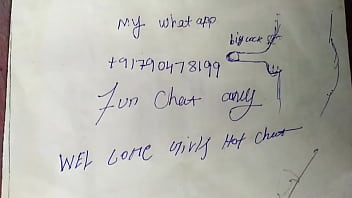 My what app
big cock
+91790478199
Fun Chat only
WEL come girls Hot Chat